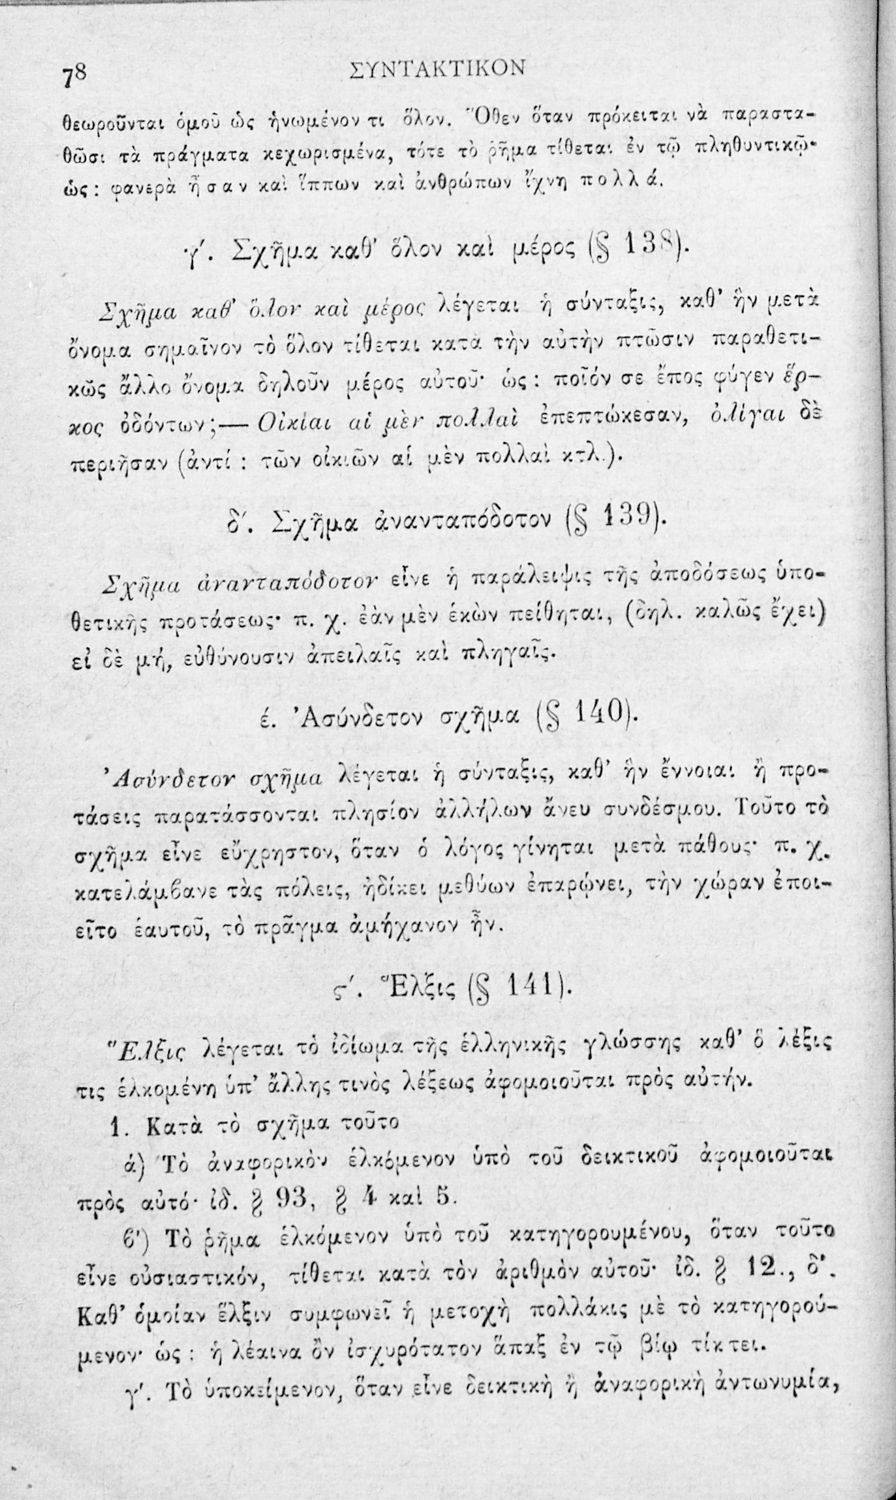 78
ΣΥΝΤΑΚΤΙΚΟΝ
θεωροῦνται ὁμοῦ ὡς ἡνωμένον τι ὅλον. Ὅθεν ὅταν πρόκειται νὰ παραστα-
θῶσι τὰ πράγματα κεχωρισμένα, τότε τὸ ῥῆμα τίθεται ἐν τῷ πληθυντικῷ·
ὡς: φανερὰ ἦσαν καὶ ἵππων καὶ ἀνθρώπων ἴχνη πολλά.
γ΄. Σχῆμα καθ' ὅλον καὶ μέρος (§ 138).
Σχῆμα καθ' ὅλον καὶ μέρος λέγεται ἡ σύνταξις, καθ' ἣν μετὰ
ὄνομα σημαῖνον τὸ ὅλον τίθεται κατὰ τὴν αὐτὴν πτῶσιν παραθετι-
κῶς ἄλλο ὄνομα δηλοῦν μέρος αὐτοῦ· ὡς: ποῖόν σε ἔπος φύγεν ἕρ-
κος ὀδόντων;— Οἰκίαι αἱ μὲν πολλαὶ ἐπεπτώκεσαν, ὀλίγαι δὲ
περιῆσαν (ἀντί: τῶν οἰκιῶν αἱ μὲν πολλαὶ κτλ.).
δ΄. Σχῆμα ἀνανταπόδοτον (§ 139).
Σχῆμα ἀνανταπόδοτον εἶνε ἡ παράλειψις τῆς ἀποδόσεως ὑπο-
θετικῆς προτάσεως· π. χ. ἐὰν μὲν ἑκὼν πείθηται, (δηλ. καλῶς ἔχει)
εἰ δὲ μή, εὐθύνουσιν ἀπειλαῖς καὶ πληγαῖς.
έ. Ἀσύνδετον σχῆμα (§ 140).
Ἀσύνδετον σχῆμα λέγεται ἡ σύνταξις, καθ' ἣν ἔννοιαι ἢ προ-
τάσεις παρατάσσονται πλησίον ἀλλήλων ἄνευ συνδέσμου. Τοῦτο τὸ
σχῆμα εἶνε εὔχρηστον, ὅταν ὁ λόγος γίνηται μετὰ πάθους· π. χ.
κατελάμβανε τὰς πόλεις, ἠδίκει μεθύων ἐπαρῴνει, τὴν χώραν ἐποι-
εῖτο ἑαυτοῦ, τὸ πρᾶγμα ἀμήχανον ἦν.
ς΄. Ἕλξις (§ 141).
Ἕλξις λέγεται τὸ ἰδίωμα τῆς ἑλληνικῆς γλώσσης καθ' ὃ λέξις
τις ἑλκομένη ὑπ' ἄλλης τινὸς λέξεως ἀφομοιοῦται πρὸς αὐτήν.
1. Κατὰ τὸ σχῆμα τοῦτο
ά) Τὸ ἀναφορικὸν ἑλκόμενον ὑπὸ τοῦ δεικτικοῦ ἀφομοιοῦται
πρὸς αὐτό· ἰδ. § 93, § 4 καὶ 5.
β') Τὸ ῥῆμα ἑλκόμενον ὑπὸ τοῦ κατηγορουμένου, ὅταν τοῦτο
εἶνε οὐσιαστικόν, τίθεται κατὰ τὸν ἀριθμὸν αὐτοῦ· ἰδ. § 12., δ΄.
Καθ' ὁμοίαν ἕλξιν συμφωνεῖ ἡ μετοχὴ πολλάκις μὲ τὸ κατηγορού-
μενον· ὡς: ἡ λέαινα ὂν ἰσχυρότατον ἅπαξ ἐν τῷ βίῳ τίκτει.
γ΄. Τὸ ὑποκείμενον, ὅταν εἶνε δεικτικὴ ἢ ἀναφορικὴ ἀντωνυμία,